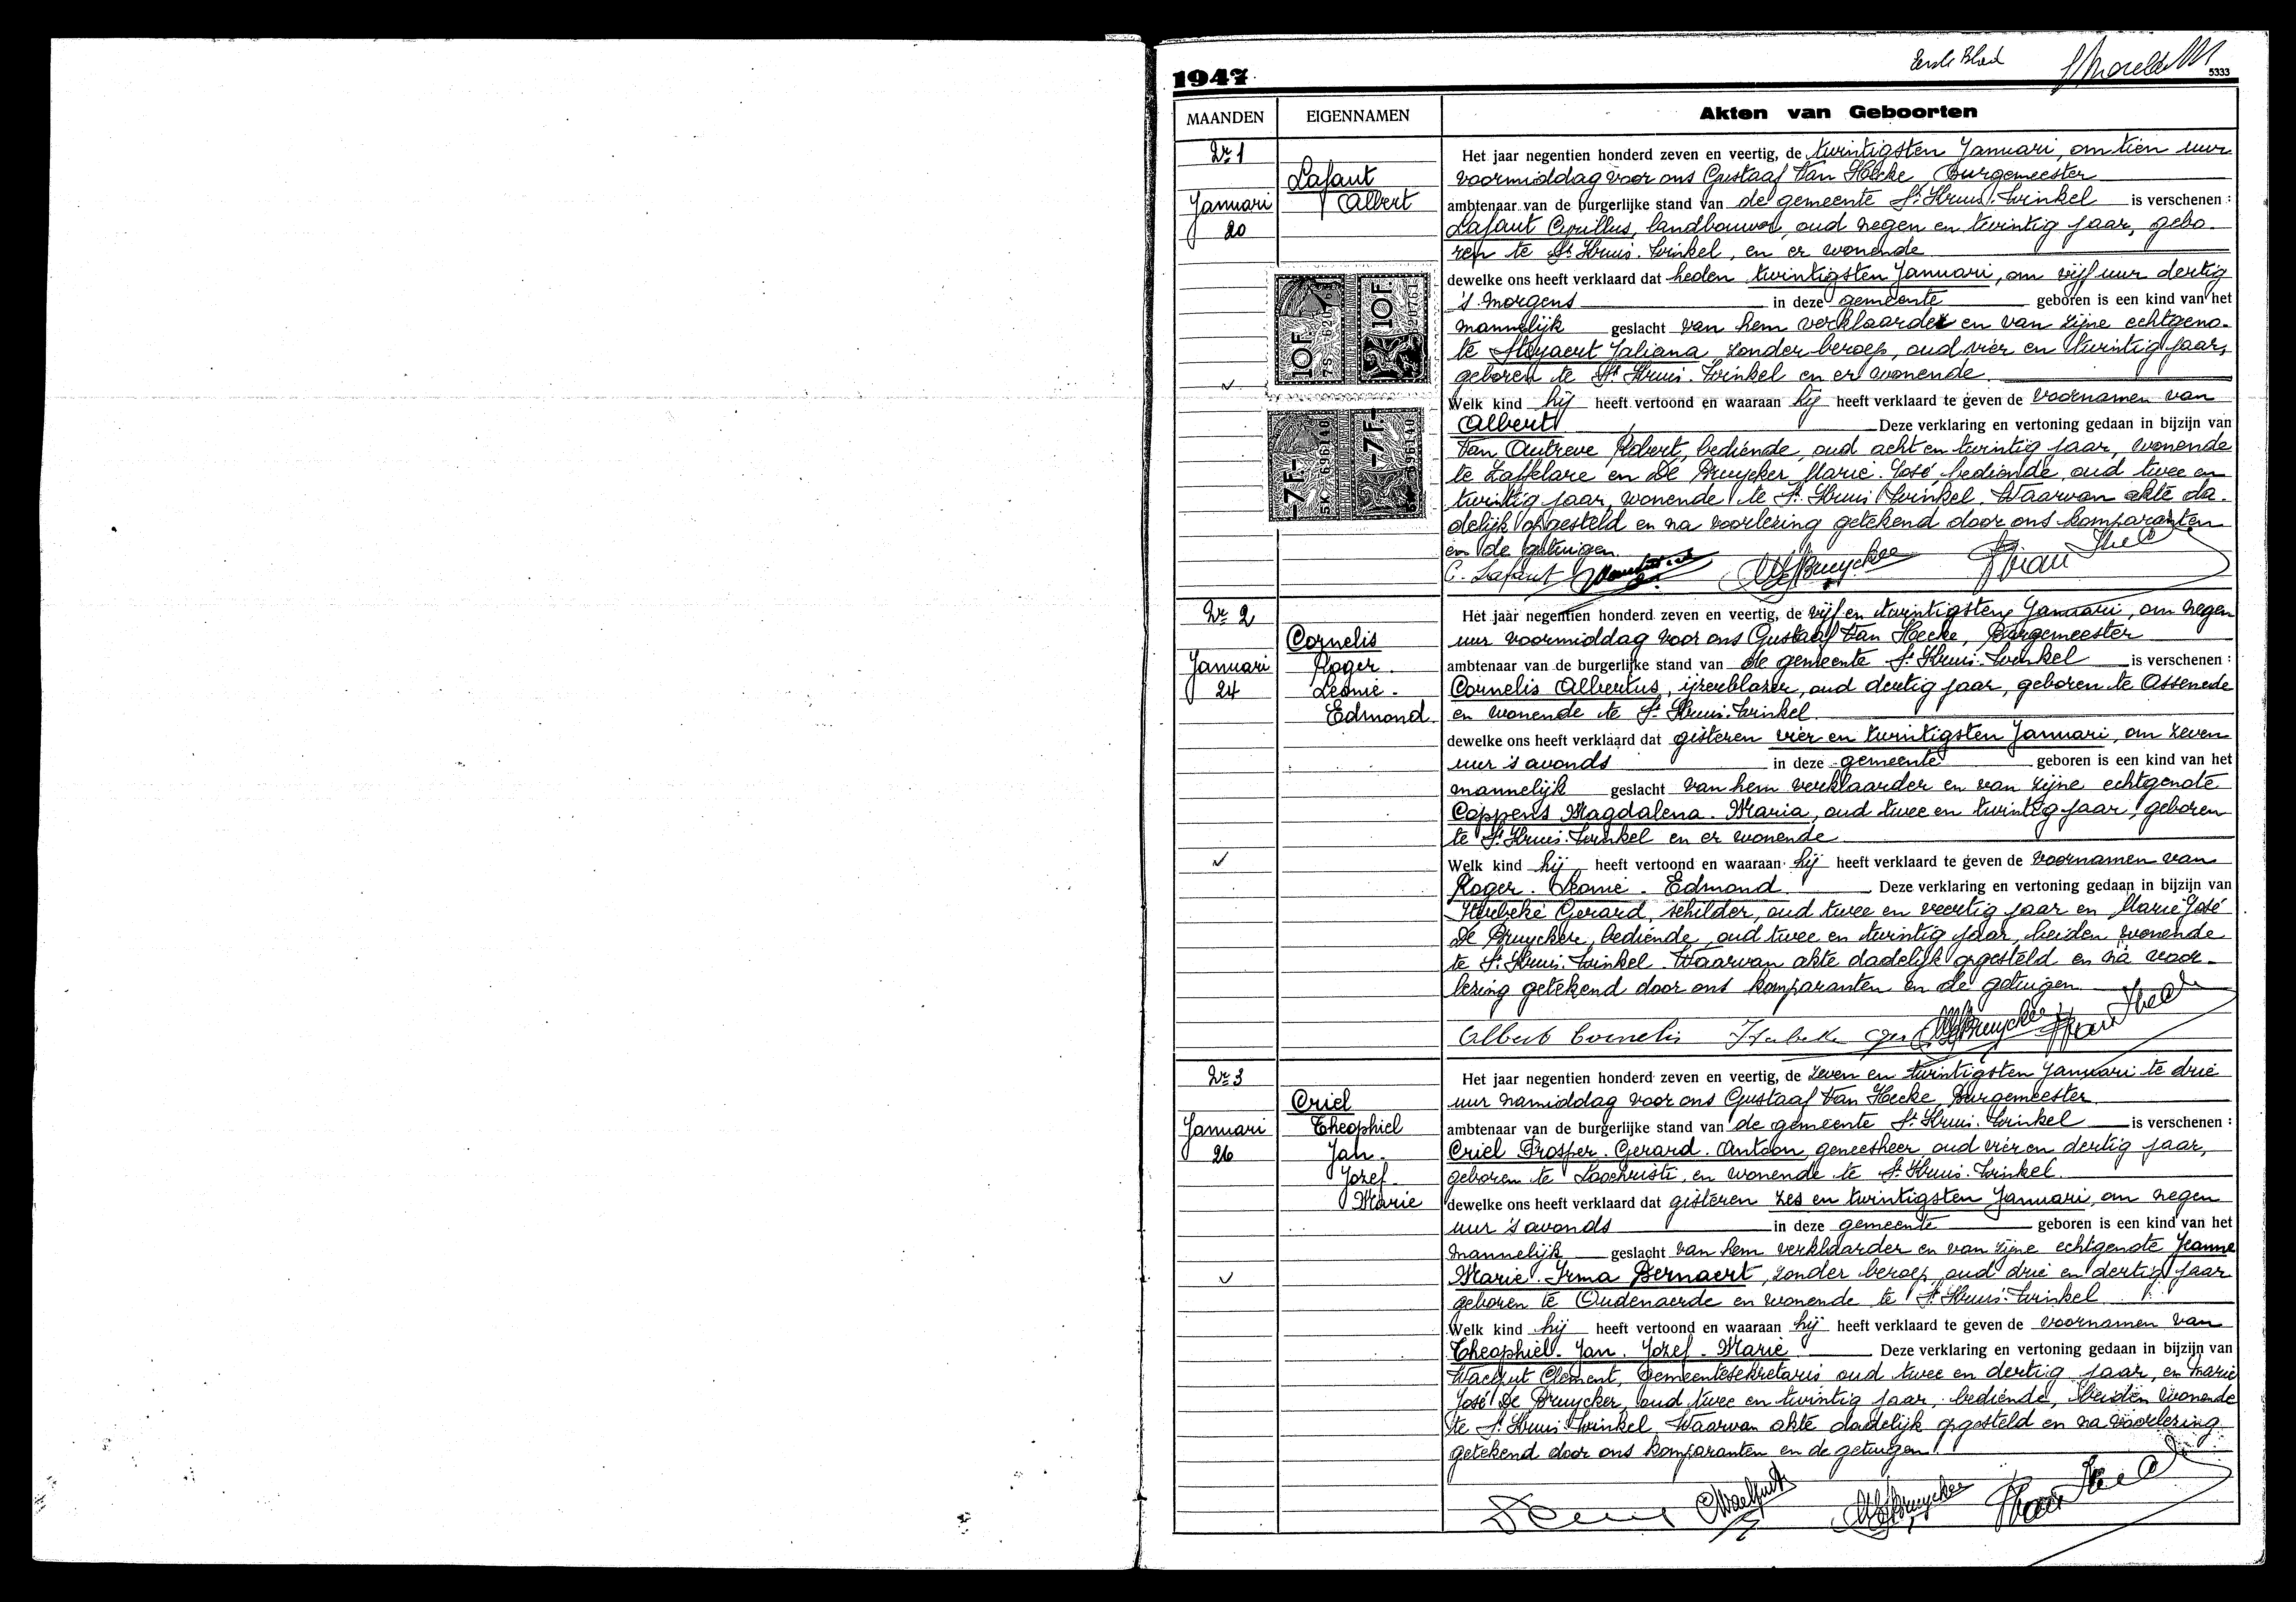 Eerste Blad
1947
5333
MAANDEN
EIGENNAMEN
Akten van Geboorten
Nr 1
Lafaut
Albert
Januari
20
Het jaar negentien honderd zeven en veertig, de twintigsten Januari, om tien uur
voormiddag voor ons Gustaaf Van Hecke, Burgemeester
ambtenaar van de burgerlijke stand van de gemeente St. Kruis-Winkel is verschenen :
Lafaut Cyrillus, landbouwer, oud negen en twintig jaar, gebo-
ren te St. Kruis-Winkel, en er wonende
dewelke ons heeft verklaard dat heden twintigsten Januari, om vijf uur dertig
's morgens in deze gemeente geboren is een kind van het
mannelijk geslacht van hem verklaarder en van zijne echtgeno-
te Juliana, zonder beroep, oud vier en twintig jaar,
geboren te St. Kruis-Winkel en er wonende
Welk kind hij heeft vertoond en waaraan hij heeft verklaard te geven de voornamen van
Albert Deze verklaring en vertoning gedaan in bijzijn van
Van Autreve Robert, bediende, oud acht en twintig jaar, wonende
te Zaffelare en De Bruycker Marie-José, bediende, oud twee en
twintig jaar, wonende te St. Kruis Winkel. Waarvan akte da-
delijk opgesteld en na voorlezing getekend door ons komparanten
en de getuigen.
C. Lafaut
10F.
10F.
-7F.-
-7F.-
696140
696140
Nr 2
Cornelis
Januari
24
Roger -
Leonie -
Edmond
Het jaar negentien honderd zeven en veertig, de vijf en twintigsten Januari, om negen
uur voormiddag voor ons Gustaaf Van Hecke, Burgemeester
ambtenaar van de burgerlijke stand van de gemeente St. Kruis-Winkel is verschenen :
Cornelis Albertus, ijzerblazer, oud dertig jaar, geboren te Assenede
en wonende te St. Kruis-Winkel
dewelke ons heeft verklaard dat gisteren vier en twintigsten Januari, om zeven
uur 's avonds in deze gemeente geboren is een kind van het
mannelijk geslacht van hem verklaarder en van zijne echtgenote
Coppens Magdalena-Maria, oud twee en twintig jaar, geboren
te St. Kruis-Winkel en er wonende
Welk kind hij heeft vertoond en waaraan hij heeft verklaard te geven de voornamen van
Roger - Leonie - Edmond Deze verklaring en vertoning gedaan in bijzijn van
Gerard, schilder, oud twee en veertig jaar en Marie José
De Bruycker, bediende, oud twee en twintig jaar, beiden wonende
te St. Kruis-Winkel. Waarvan akte dadelijk opgesteld en na voor-
lezing getekend door ons komparanten en de getuigen
Albert Cornelis
Nr 3
Criel
Januari
26
Theophiel
Jan -
Jozef -
Marie
Het jaar negentien honderd zeven en veertig, de zeven en twintigsten Januari te drie
uur namiddag voor ons Gustaaf Van Hecke Burgemeester
ambtenaar van de burgerlijke stand van de gemeente St. Kruis-Winkel is verschenen :
Criel Prosper-Gerard-Antoon, geneesheer, oud vier en dertig jaar,
geboren te Loochristi en wonende te St. Kruis-Winkel
dewelke ons heeft verklaard dat gisteren zes en twintigsten Januari, om negen
uur 's avonds in deze gemeente geboren is een kind van het
mannelijk geslacht van hem verklaarder en van zijne echtgenote Jeanne
Marie-Irma Bernaert, zonder beroep, oud drie en dertig jaar
geboren te Oudenaerde en wonende te St. Kruis-Winkel
Welk kind hij heeft vertoond en waaraan hij heeft verklaard te geven de voornamen van
Theophiel - Jan - Jozef - Marie Deze verklaring en vertoning gedaan in bijzijn van
Waelput Clement, Gemeentesekretaris oud twee en dertig jaar, en Marie
José De Bruycker, oud twee en twintig jaar, bediende, beiden wonende
te St. Kruis-Winkel. Waarvan akte dadelijk opgesteld en na voorlezing
getekend door ons komparanten en de getuigen.